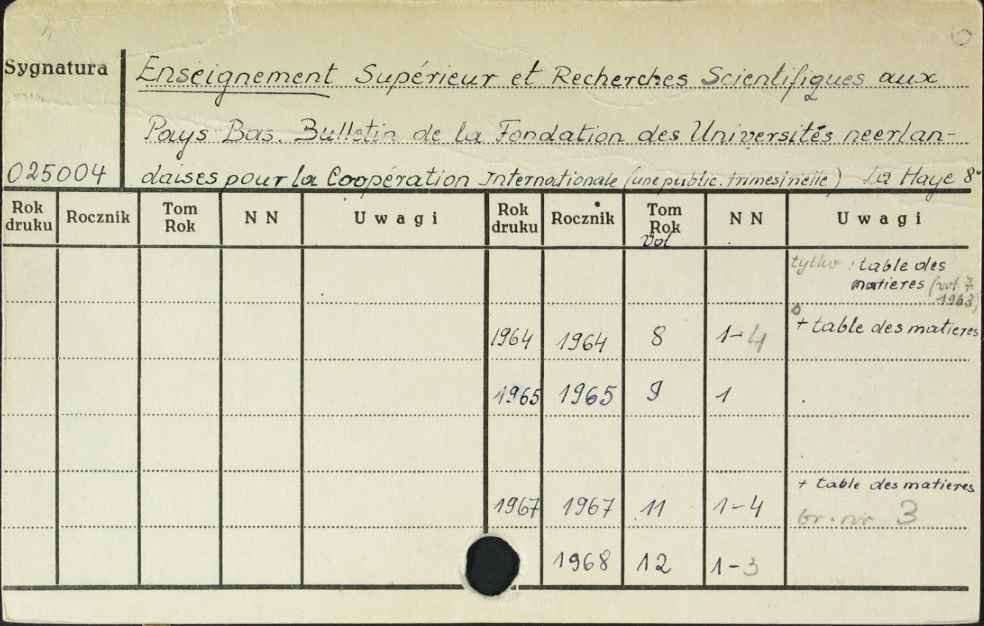 Sygnatura
Enseignement Supérieur et Recherches Scientifiques aux
Pays Bas. Bulletin de la Fondation des Universités neerlan-
025004
daises pour la Coopération Internationale (une public. trimestrielle) La Haye 8°
Rok druku Rocznik Tom Rok NN Uwagi Rok druku Rocznik Tom Rok Vol NN Uwagi
tylko: table des
matieres (vol. 7
1963)
1964 1964 8 1-4 + table des matieres
1965 1965 9 1
+ table des matieres
1967 1967 11 1-4 br. nr. 3
1968 12 1-3